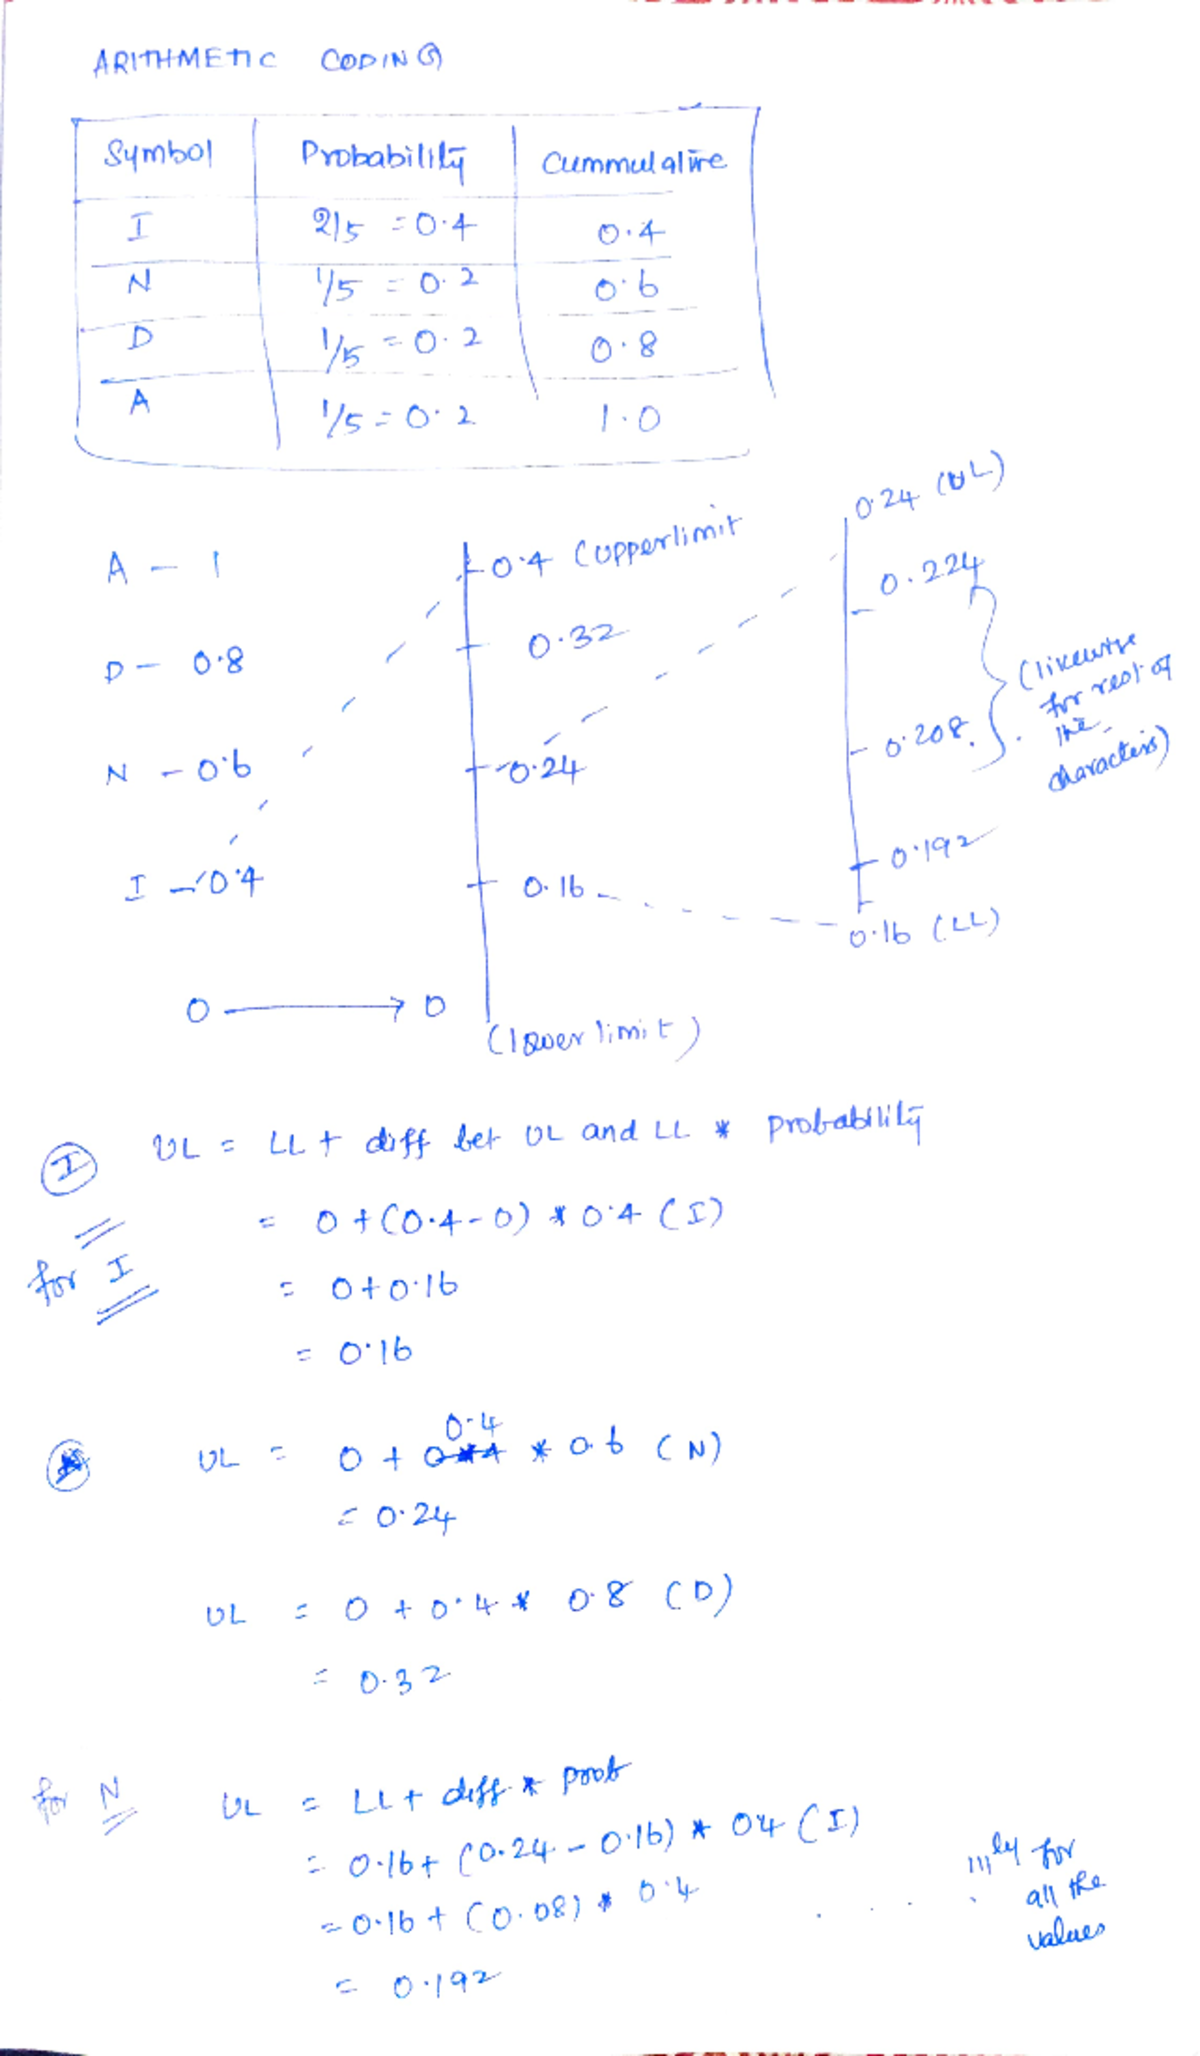 ARITHMETIC CODING
Symbol Probability Cummulative
I 2/5 = 0.4 0.4
N 1/5 = 0.2 0.6
D 1/5 = 0.2 0.8
A 1/5 = 0.2 1.0
0.24 (UL)
A - 1 0.4 (upperlimit 0.224
D - 0.8 0.32 (likewise
for rest of
the
characters)
N - 0.6 0.24 0.208
I - 0.4 0.16 0.192
0.16 (LL)
0 → 0
(lower limit)
I UL = LL + diff bet UL and LL * probability
= 0 + (0.4-0) * 0.4 (I)
for I = 0+0.16
= 0.16
0.4
UL = 0 + * 0.6 (N)
= 0.24
UL = 0 + 0.4 * 0.8 (D)
= 0.32
for N UL = LL + diff * prob
= 0.16+ (0.24 - 0.16) * 0.4 (I)
= 0.16 + (0.08) * 0.4
= 0.192
. . . . |||ly for
all the
values